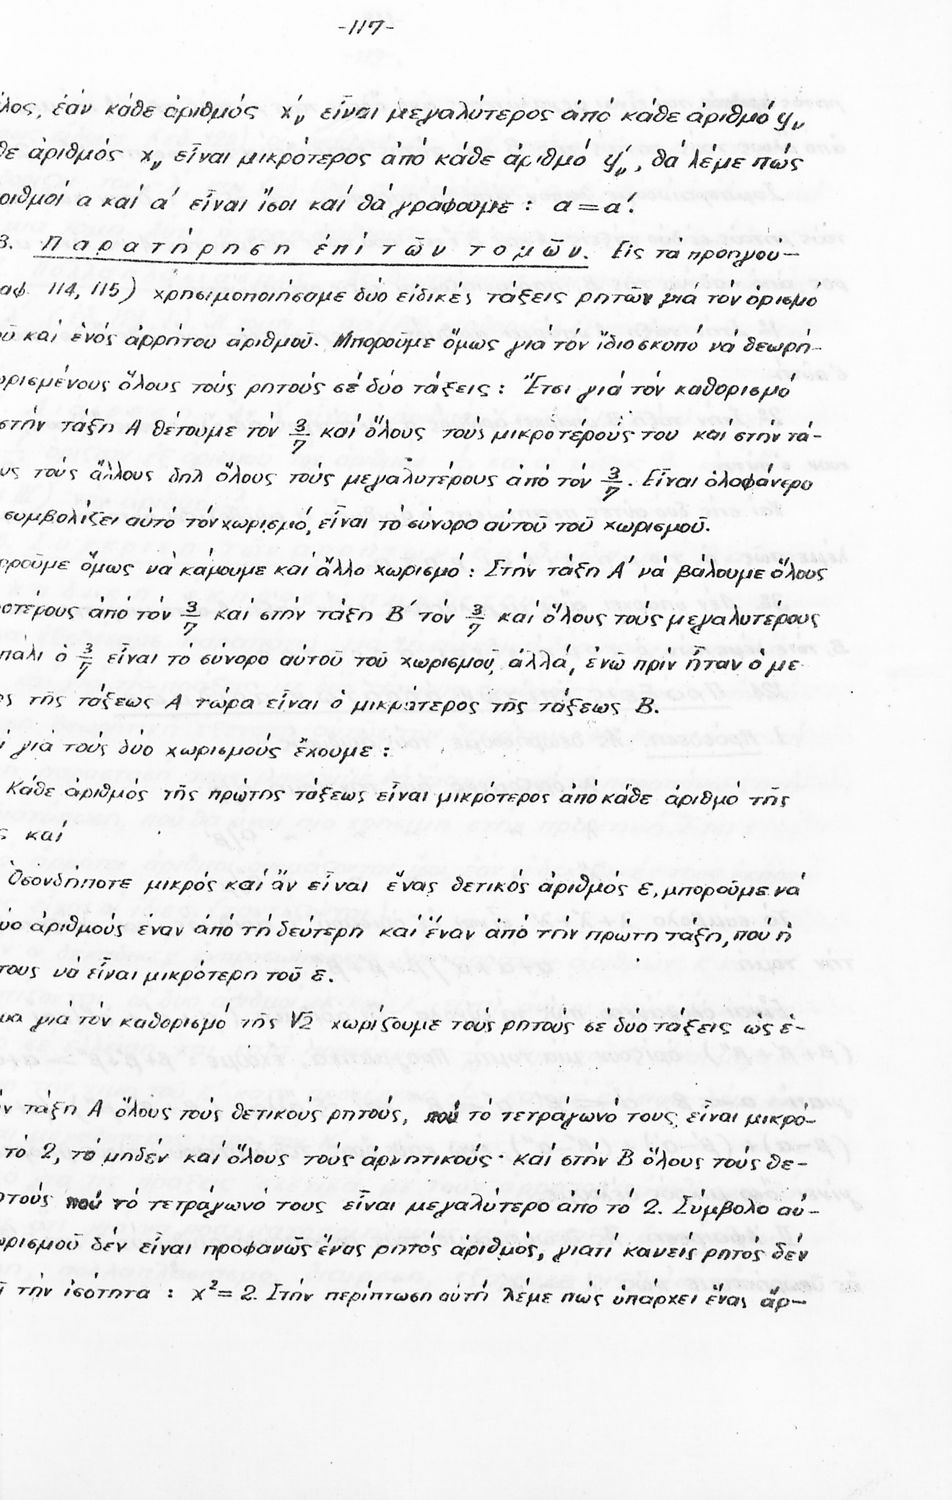 -117-
λος, ἐάν κάθε ἀριθμός x_ν εἶναι μεγαλύτερος ἀπό κάθε ἀριθμό y_ν
θε ἀριθμός x_ν εἶναι μικρότερος ἀπό κάθε ἀριθμό y'_ν, θά λέμε πώς
ριθμοί α καί α' εἶναι ἴσοι καί θά γράφουμε : α = α'.
8. Παρατήρηση ἐπί τῶν τομῶν. Εἰς τά προηγού-
αφ. 114, 115) χρησιμοποιήσαμε δύο εἰδικές τάξεις ρητῶν γιά τόν ὁρισμό
οῦ καί ἑνός ἀρρήτου ἀριθμοῦ. Μποροῦμε ὅμως γιά τόν ἴδιο σκοπό νά θεωρή-
ωρισμένους ὅλους τούς ρητούς σέ δύο τάξεις : Ἔτσι γιά τόν καθορισμό
στήν τάξη Α θέτουμε τόν 3/7 καί ὅλους τούς μικροτέρους του καί στην τά-
υς τούς ἄλλους δηλ ὅλους τούς μεγαλυτέρους ἀπό τόν 3/7. Εἶναι ὁλοφάνερο
συμβολίζει αὐτό τόν χωρισμό, εἶναι τό σύνορο αὐτοῦ τοῦ χωρισμοῦ.
ροῦμε ὅμως νά κάμουμε καί ἄλλο χωρισμό : Στήν τάξη Α' νά βάλουμε ὅλους
οτέρους ἀπό τόν 3/7 καί στήν τάξη Β' τόν 3/7 καί ὅλους τούς μεγαλυτέρους
πάλι ὁ 3/7 εἶναι τό σύνορο αὐτοῦ τοῦ χωρισμοῦ, ἀλλά, ἐνῶ πρίν ἦταν ὁ με
ος τῆς τάξεως Α τώρα εἶναι ὁ μικρότερος τῆς τάξεως Β.
ί γιά τούς δύο χωρισμούς ἔχουμε :
Κάθε ἀριθμός τῆς πρώτης τάξεως εἶναι μικρότερος ἀπό κάθε ἀριθμό τῆς
ς καί
Ὁσονδήποτε μικρός καί ἄν εἶναι ἕνας θετικός ἀριθμός ε, μποροῦμε νά
ύο ἀριθμούς ἕναν ἀπό τή δεύτερη καί ἕναν ἀπό τήν πρώτη τάξη, που ἡ
τους νά εἶναι μικρότερη τοῦ ε.
μα γιά τόν καθορισμό τῆς √2 χωρίζουμε τούς ρητούς σέ δύο τάξεις ὡς ἑ-
ήν τάξη Α ὅλους τούς θετικούς ρητούς, πού τό τετράγωνό τους εἶναι μικρό-
τό 2, τό μηδέν καί ὅλους τούς ἀρνητικούς· καί στήν Β ὅλους τούς θε-
ητούς πού τό τετράγωνό τους εἶναι μεγαλύτερο ἀπό τό 2. Σύμβολο αὐ-
ωρισμοῦ δέν εἶναι προφανῶς ἕνας ρητός ἀριθμός, γιατί κανείς ρητός δέν
ῖ τήν ἰσότητα : x² = 2. Στήν περίπτωση αὐτή λέμε πώς ὑπάρχει ἕνας ἄρ-